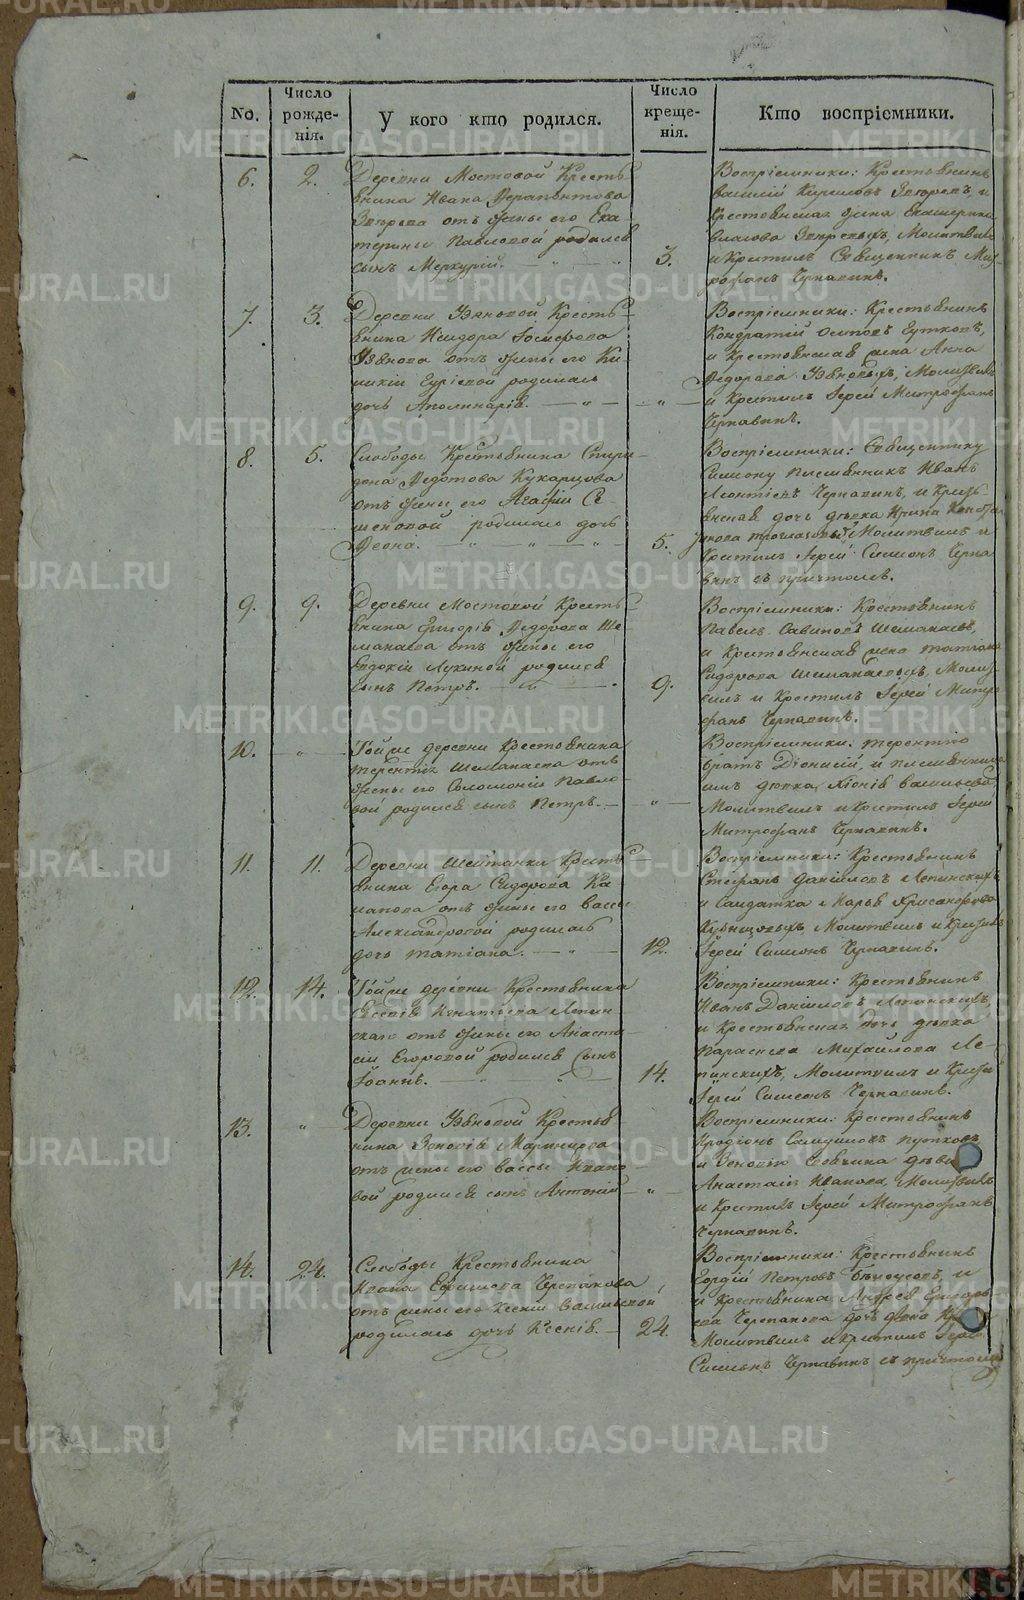 No.
Число
рожде-
нія.
У кого кто родился.
Число
креще-
нія.
Кто воспріемники.
6.
2.
Деревни Мостовой Кресть-
янина Ивана Ферапонтова
Звѣрева отъ жены его Ека-
терины Павловой родился
сынъ Меркурій.
3.
Воспріемники: Крестьянинъ
Василій Кириловъ Звѣревъ, и
крестьянская жена Екатерина
Власова Звѣревыхъ, Молитвилъ
и Крестилъ Священникъ Мит-
рофанъ Чернавинъ.
7.
3.
Деревни Крестья-
нина Исидора
отъ жены его Ки-
ликіи родилась
дочь Аполинарія.
"
Воспріемники: Крестьянинъ
Кондратій Осиповъ
и Крестьянская жена Анна
Федорова Молитвилъ
и Крестилъ Іерей Митрофанъ
Чернавинъ.
8.
5.
Слободы Крестьянина Спири-
дона Федотова Кукарцова
отъ жены его Агафіи Се-
меновой родилась дочь
Феона.
5.
Воспріемники: Священнику
Симеону племянникъ Иванъ
Леонтіевъ Чернавинъ, и Кресть-
янская дочь дѣвка Ирина
Молитвилъ и
Крестилъ Іерей Симеонъ Черна-
винъ съ причтомъ.
9.
9.
Деревни Мостовой Кресть-
янина Григорія Федорова Ше-
манаева отъ жены его
Евдокіи Лукиной родился
сынъ Петръ.
9.
Воспріемники: Крестьянинъ
Павелъ Савиновъ Шеманаевъ,
и Крестьянская жена Татіана
Сидорова Шеманаевыхъ, Молит-
вилъ и Крестилъ Іерей Митро-
фанъ Чернавинъ.
10.
"
Той же деревни Крестьянина
Терентія Шеманаева отъ
жены его Соломоніи Павло-
вой родился сынъ Петръ.
"
Воспріемники: Терентію
братъ Діонисій, и племянница
дѣвка Хіонія Васильева,
Молитвилъ и Крестилъ Іерей
Митрофанъ Чернавинъ.
11.
11.
Деревни Шайтанки Кресть-
янина Егора Сидорова
отъ жены его Вассы
Александровой родилась
дочь Татіана.
12.
Воспріемники: Крестьянинъ
Стефанъ Даніиловъ Лепинскихъ
и Салдатка Марья Хрисанфова
Кузнецовыхъ Молитвилъ и Крестилъ
Іерей Симеонъ Чернавинъ.
12.
14.
Той же деревни Крестьянина
Игнатіева Лепин-
скаго отъ жены его Анаста-
сіи Егоровой родился сынъ
Іоаннъ.
14.
Воспріемники: Крестьянинъ
Иванъ Даніиловъ Лепинскихъ,
и Крестьянская дочь дѣвка
Параскева Михайлова Ле-
пинскихъ, Молитвилъ и Крестилъ
Іерей Симеонъ Чернавинъ.
13.
"
Деревни Крестья-
нина Зеновія Мартинова
отъ жены его Вассы Ивано-
вой родился сынъ Антоній
"
Воспріемники: Крестьянинъ
Родіонъ
и Зеновію дѣвка
Анастасія Иванова, Молитвилъ
и Крестилъ Іерей Митрофанъ
Чернавинъ.
14.
24.
Слободы Крестьянина
Ивана Ефимова Черепанова
отъ жены его Ксеніи Васильевой
родилась дочь Ксенія.
24.
Воспріемники: Крестьянинъ
Гордій Петровъ Бѣлоусовъ, и
Крестьянина Андрея Григорь-
ева Черепанова дочь дѣвка
Молитвилъ и Крестилъ Іерей
Симеонъ Чернавинъ съ причтомъ